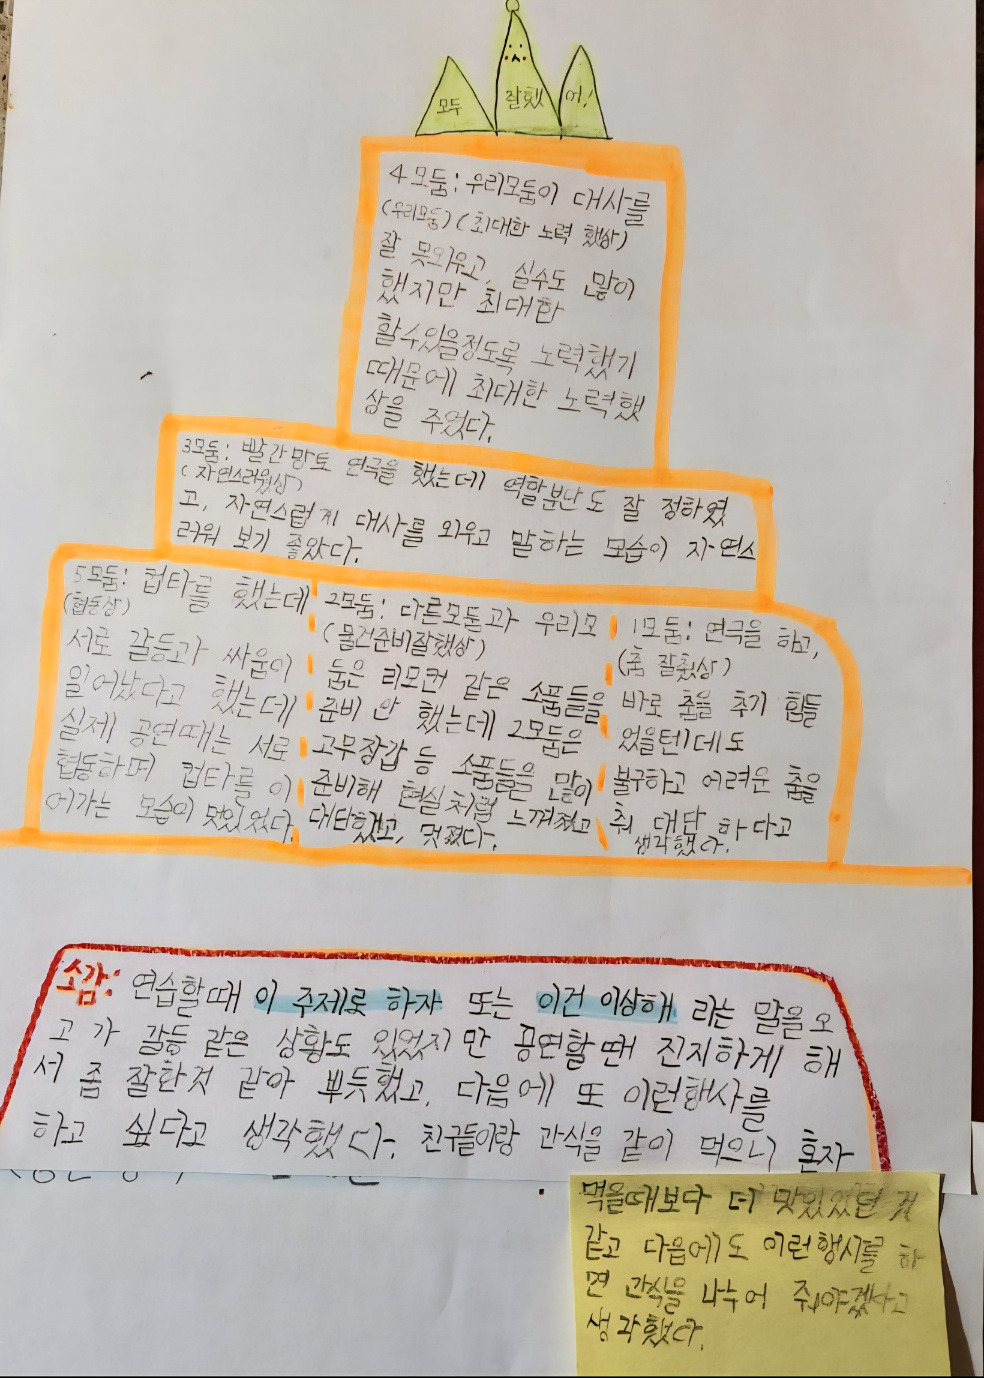 모두 잘했 어!
4모둠: 우리모둠이 대사를
(우리모둠) (최대한 노력 했상)
잘 못외우고, 실수도 많이
했지만 최대한
할수있을정도록 노력했기
때문에 최대한 노력했
상을 주었다.
3모둠: 빨간망토 연극을 했는데 역할분단도 잘 정하였
(자연스러웠상)
고, 자연스럽게 대사를 외우고 말하는 모습이 자연스
러워 보기 좋았다.
5모둠: 컵타를 했는데
(협동상)
서로 갈등과 싸움이
일어났다고 했는데
실제 공연때는 서로
협동하며 컵타를 이
어가는 모습이 멋있었다.
2모둠: 다른모둠과 우리모
(물건준비잘했상)
둠은 리모컨 같은 소품들을
준비 안 했는데 2모둠은
고무장갑 등 소품들을 많이
준비해 현실처럼 느껴졌고
대단했고, 멋졌다.
1모둠: 연극을 하고,
(춤 잘췄상)
바로 춤을 추기 힘들
었을턴데도
불구하고 어려운 춤을
춰 대단하다고
생각했다.
소감: 연습할때 이 주제로 하자 또는 이건 이상해 라는 말을 오
고 가 갈등 같은 상황도 있었지만 공연할땐 진지하게 해
서 좀 잘한것 같아 뿌듯했고, 다음에 또 이런행사를
하고 싶다고 생각했다. 친구들이랑 간식을 같이 먹으니 혼자
먹을때보다 더 맛있었던 것
같고 다음에도 이런행사를 하
면 간식을 나누어 줘야겠다고
생각했다.